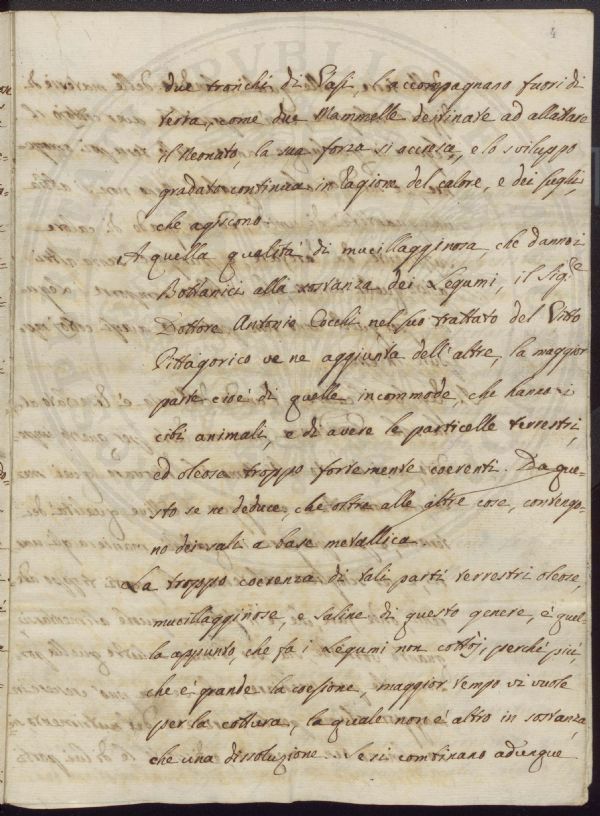 4
due tronchi di Vasi, l'accompagnano fuori di
terra, come due Mammelle destinate ad allattare
il Neonato, la sua forza si accresce, e lo sviluppo
gradato continua in ragione del calore, e dei sughi,
che agiscono.
A quella qualità di mucillagginosa, che danno i
Bottanici alla sostanza dei Legumi, il Sig.re
Dottore Antonio Cocchi nel suo trattato del Vitto
Pittagorico ve ne aggiunta dell'altre, la maggior
parte cioè di quelle incommode, che hanno i
cibi animali, e di avere le particelle terrestri,
ed oleose troppo fortemente coerenti. Da que-
sto se ne deduce, che oltre alle altre cose, contengo-
no dei sali a base metallica
La troppo coerenza di tali parti terrestri oleose,
mucillagginose, e saline di questo genere, è quel-
la appunto, che fà i Legumi non cottoj, perchè più,
che è grande la coesione, maggior tempo vi vuole
per la cottura, la quale non è altro in sostanza,
che una dissoluzione. Se si combinano adunque